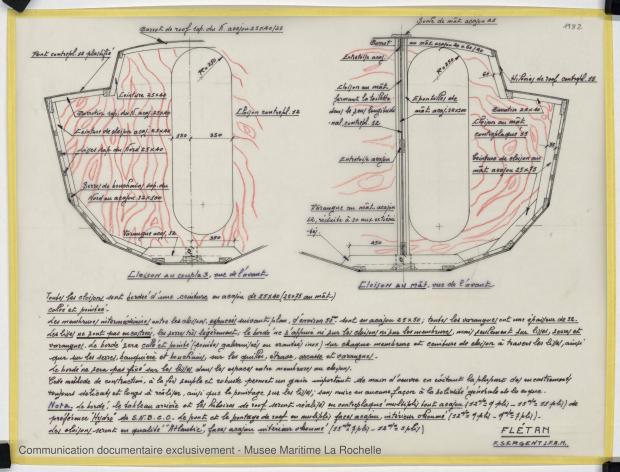 1982
Barrot de roof sap. du N. acajou 25x40/25
Pont contrepl. 12 plastifié
Ceinture 25x40
Ceinture de cloison acaj. 25x40
Lisses sap. du Nord 25x40
Serres de bouchains sap. du
Nord ou acajou 32x100
Varangue acaj. 32
R=250
250
250
350
Cloison contrepl. 12
Cloison au couple 3, vue de l'avant
Barrot au mât acajou
Entretoise acaj.
Cloison au mât
formant la toilette
dans le sens longitudi-
nal contrepl. 12
Entretoise acajou
Varangue au mât acajou
Epontilles de
mât acaj.
R=250
Hiloires de roof contrepl. 12
Cloison au mât
contreplaqué
Ceinture de cloison au
mât acajou 25x75
450
Cloison au mât, vue de l'avant
Toutes les cloisons sont bordées d'une ceinture en acajou de 25x40 (25x75 au mât)
collée et pointée.
Les membrures intermédiaires entre les cloisons, espacées suivant plan, d'environ sont en acajou 25x50; toutes les varangues ont une épaisseur de 32.
Les lisses ne sont pas encastrées, les serres très légèrement, le bordé ne s'appuie ni sur les cloisons ni sur les membrures, mais seulement sur lisses, serres et
varangues. Le bordé sera collé et pointé (pointes galvanisées ou crantées inox) sur chaque membrure et ceinture de cloison à travers les lisses, ainsi
que sur les serres, bauquière et bouchains, sur les quilles, étrave, arcasse et varangues.
Le bordé ne sera pas fixé sur les lisses dans les espaces entre membrures ou cloisons.
Cette méthode de construction, à la fois souple et robuste permet un gain important de main d'œuvre en évitant la plupart des encastrements
toujours délicats et longs à réaliser, ainsi que le pointage sur les lisses, sans nuire en aucune façon à la solidité générale de la coque.
Nota. Le bordé, le tableau arrière et les hiloires de roof seront réalisés en contreplaqué multiplis tout acajou
préférence "Hydro" le pont et le pontage de roof en multiplis faces acajou, intérieur okoumé
des cloisons seront en qualité "Atlantic" faces acajou intérieur okoumé
FLÉTAN
F. SERGENT I.F.A.N.
Communication documentaire exclusivement - Musee Maritime La Rochelle